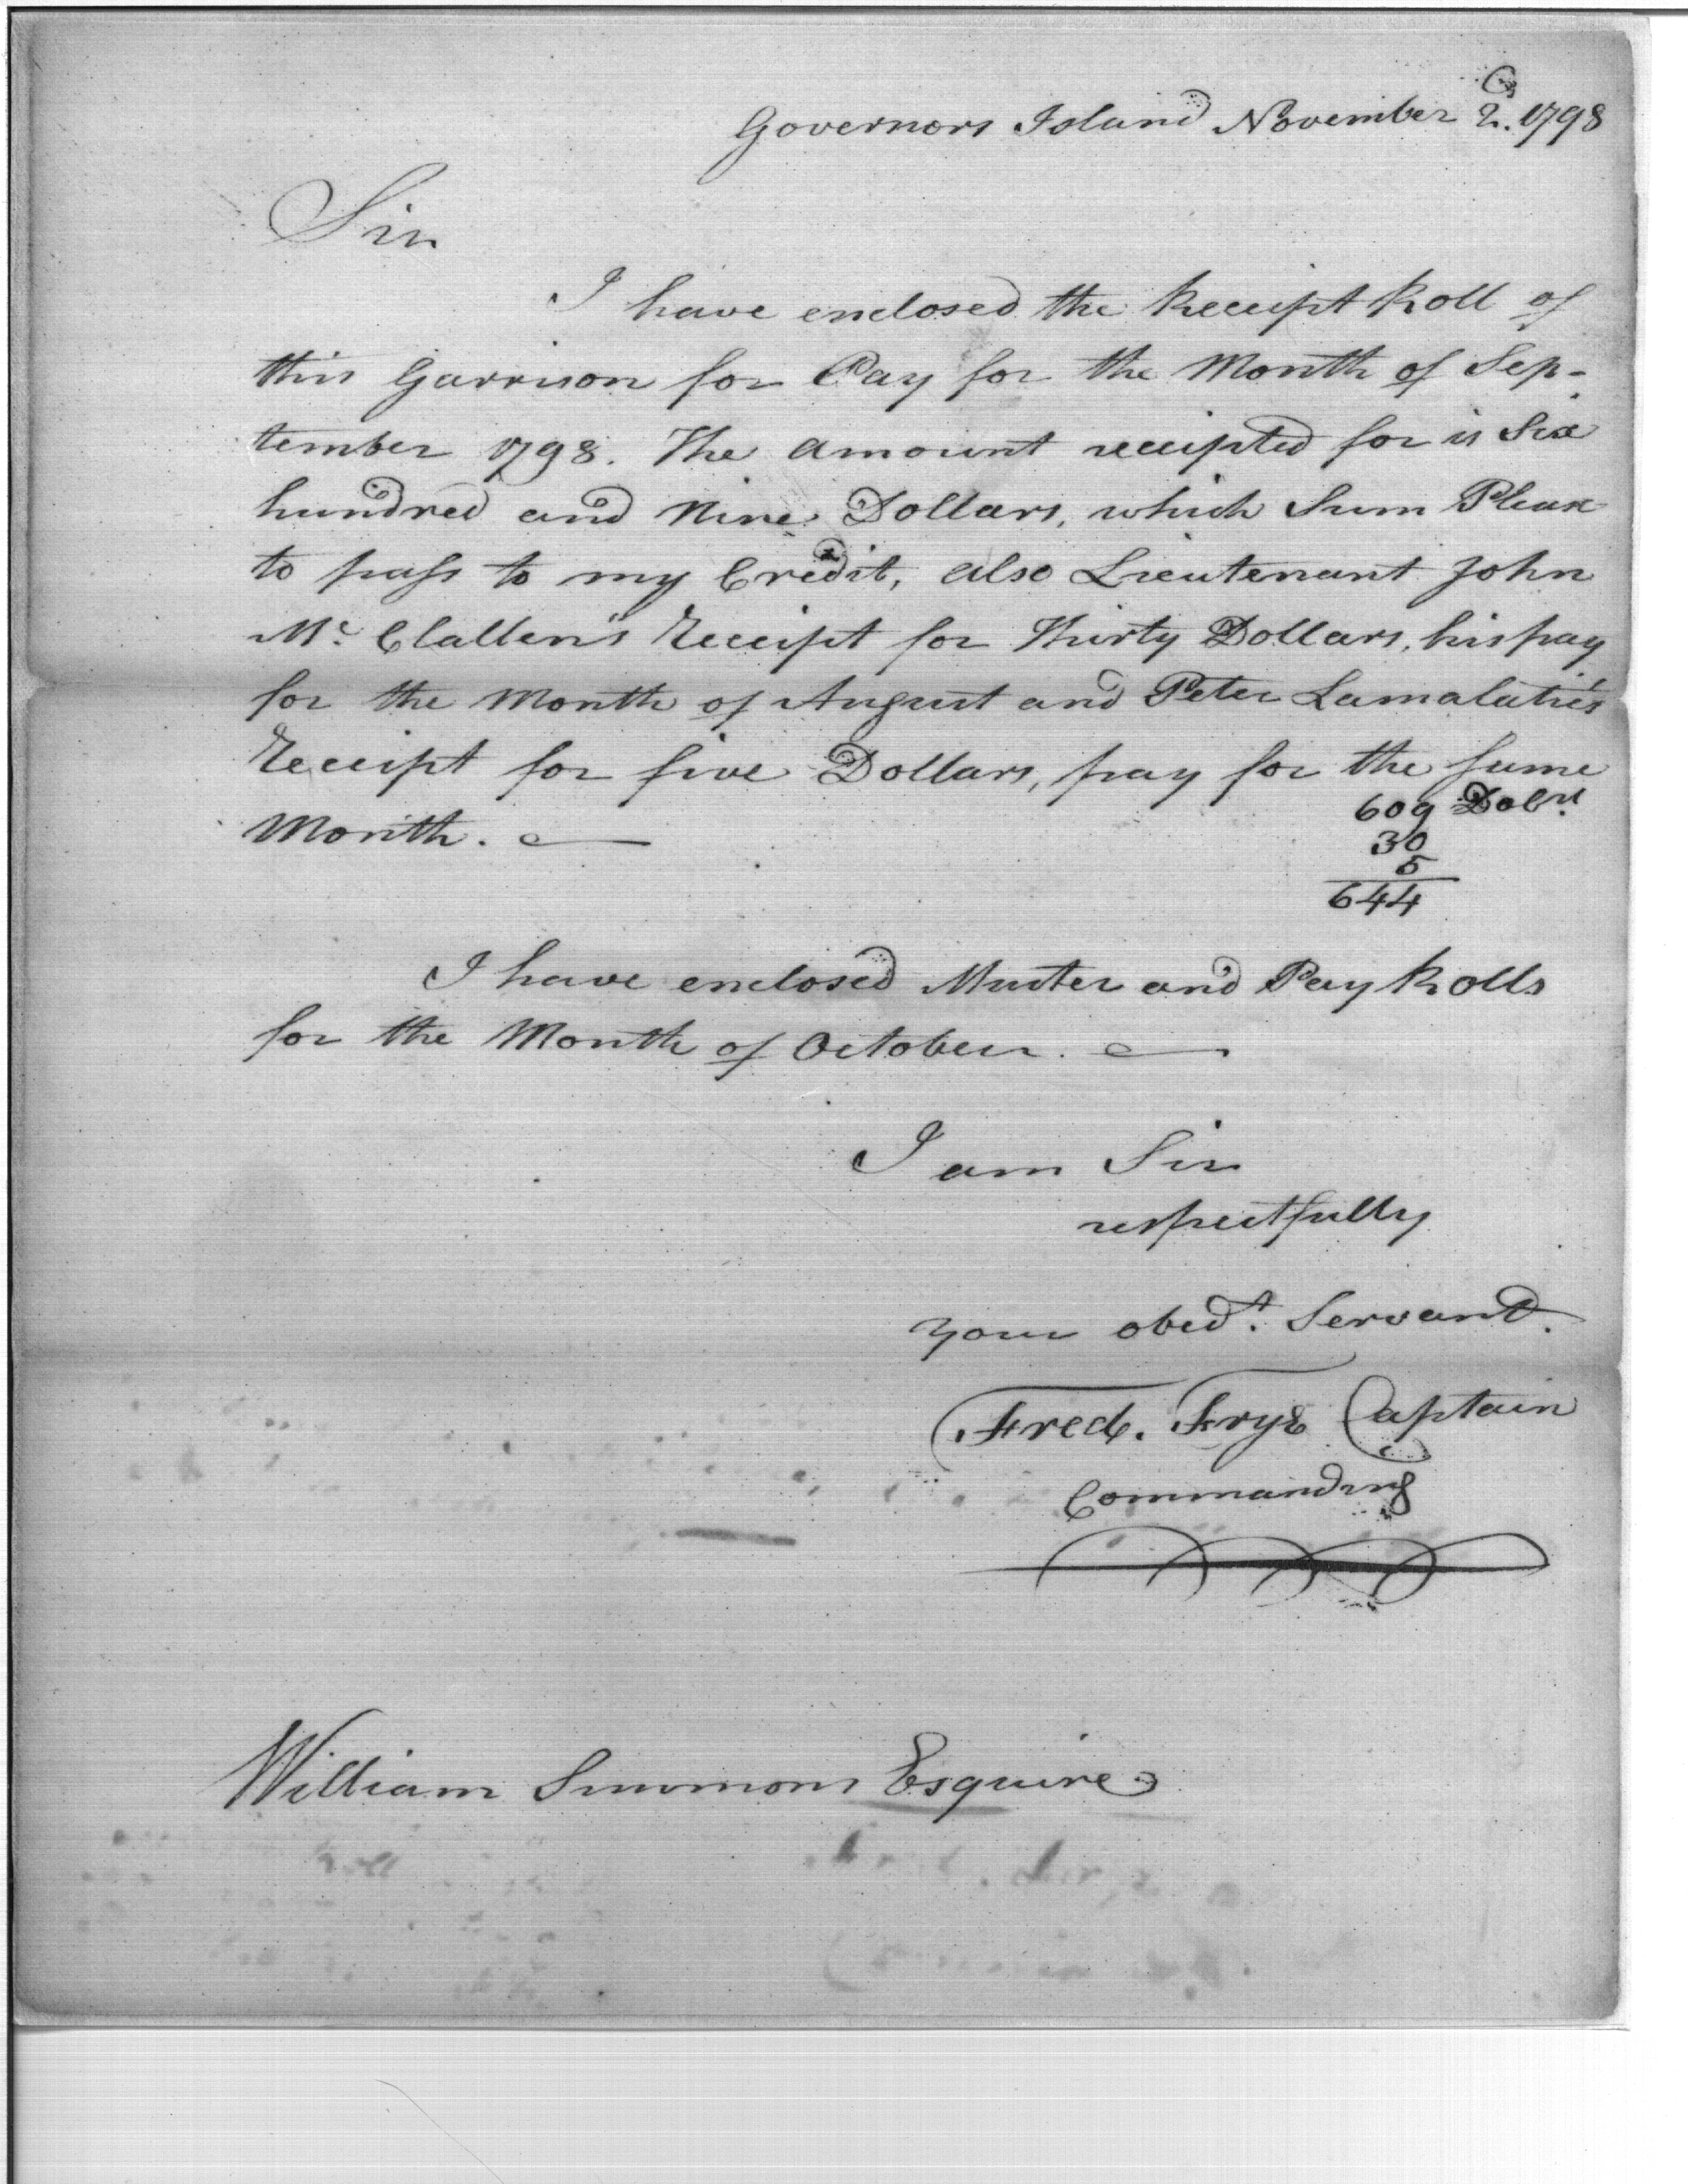 Governors Island November 2d. 1798
Sir
I have enclosed the Receipt Roll of
this Garrison for Pay for the Month of Sep-
tember 1798. The amount receipted for is Six
hundred and Nine Dollars, which Sum Please
to pass to my Credit, also Lieutenant John
Mc. Clallen's Receipt for Thirty Dollars, his pay
for the Month of August and Peter Lamalatie's
Receipt for five Dollars, pay for the same
Month.
609 Dolrs.
30
5
644
I have enclosed Muster and Pay Rolls
for the Month of October.
I am Sir
respectfully
your obedt. Servant.
Fredk. Frye Captain
Commanding
William Simmons Esquire